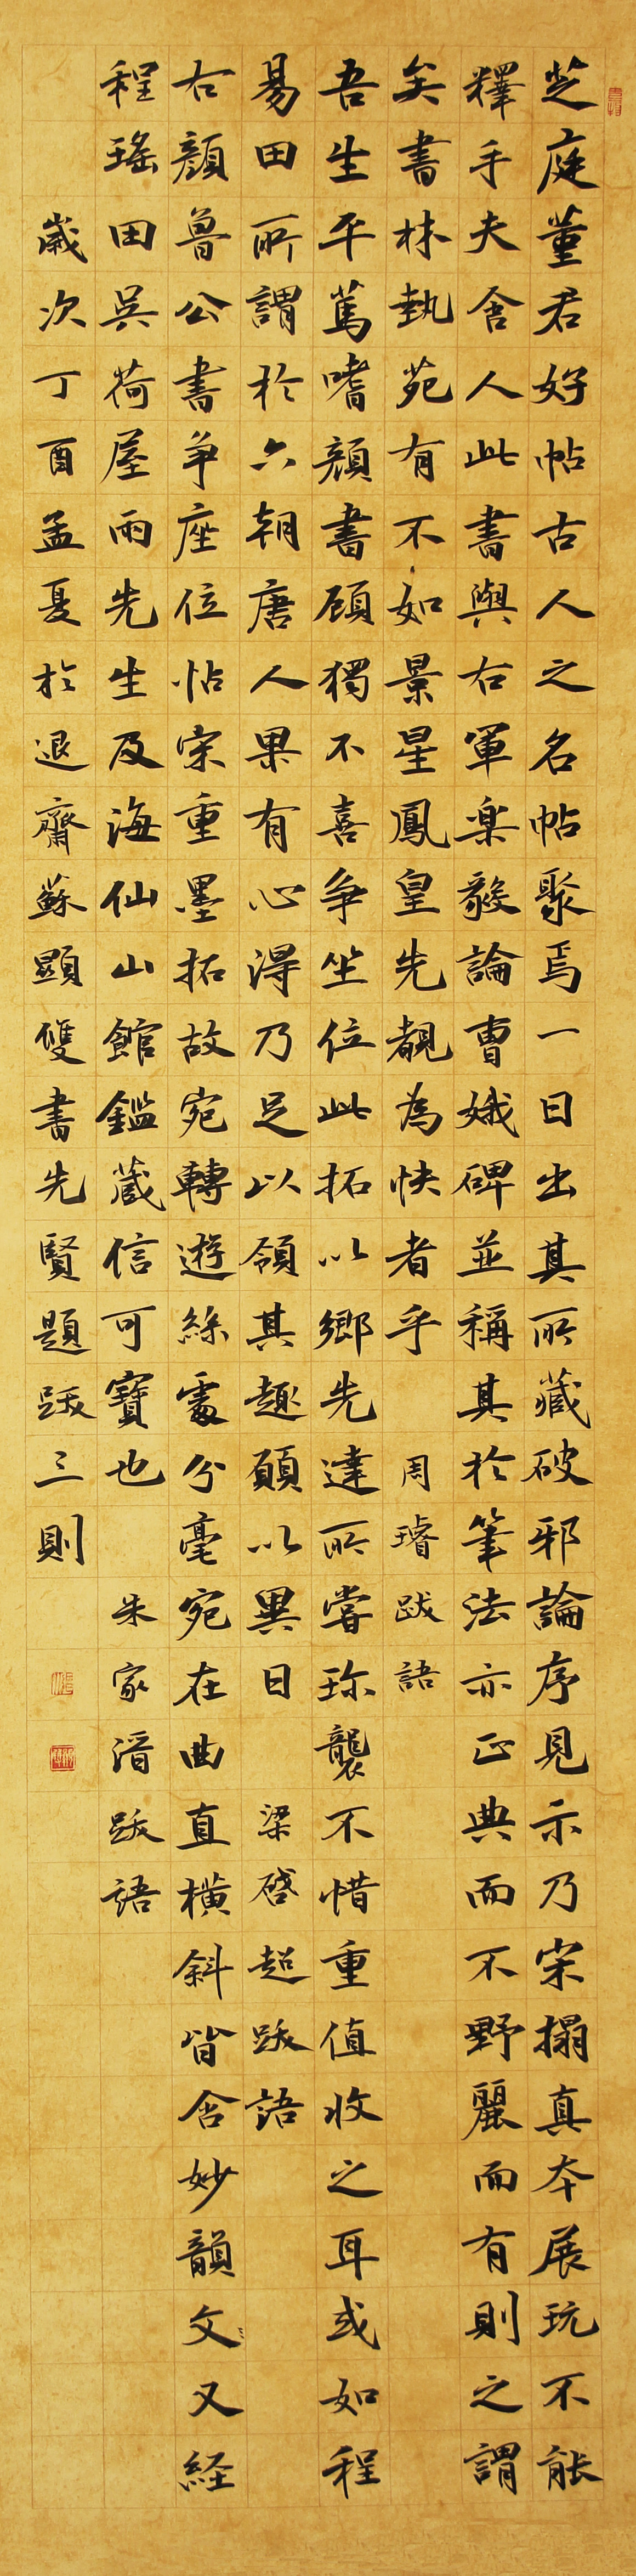 芝庭董君好帖古人之名帖聚焉一日出其所藏破邪論序見示乃宋搨真本展玩不能
釋手夫舍人此書與右軍樂毅論曹娥碑並稱其於筆法亦正典而不野麗而有則之謂
矣書林執苑有不如景星鳳皇先覩為快者乎 周璿跋語
吾生平篤嗜顏書顧獨不喜争坐位此拓以鄉先達所嘗珎襲不惜重值收之耳或如程
易田所謂於六朝唐人果有心得乃足以領其趣願以異日 梁啓超跋語
右顏魯公書争座位帖宋重墨拓故宛轉遊絲處分毫宛在曲直横斜皆含妙韻文又経
程瑤田吳荷屋兩先生及海仙山館鑑藏信可寶也 朱家濳跋語
歲次丁酉孟夏於退齋蘇顯雙書先賢題跋三則